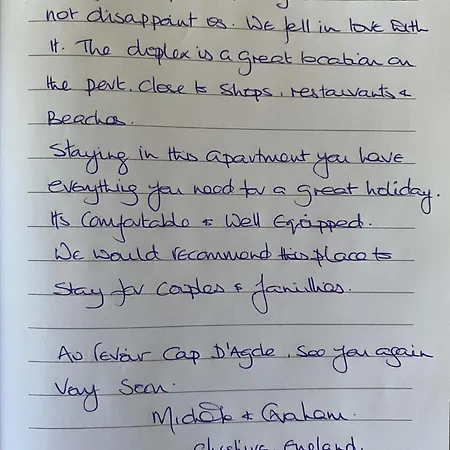 not disappoint us. We fell in love with
it. The duplex is a great location on
the port. Close to shops, restaurants &
Beaches.
Staying in this apartment you have
everything you need for a great holiday.
It's Comfortable & Well Equipped.
We would recommend this place to
stay for couples & families.
Au revoir Cap D'Agde. See you again
Very Soon.
Michele & Graham.
England.